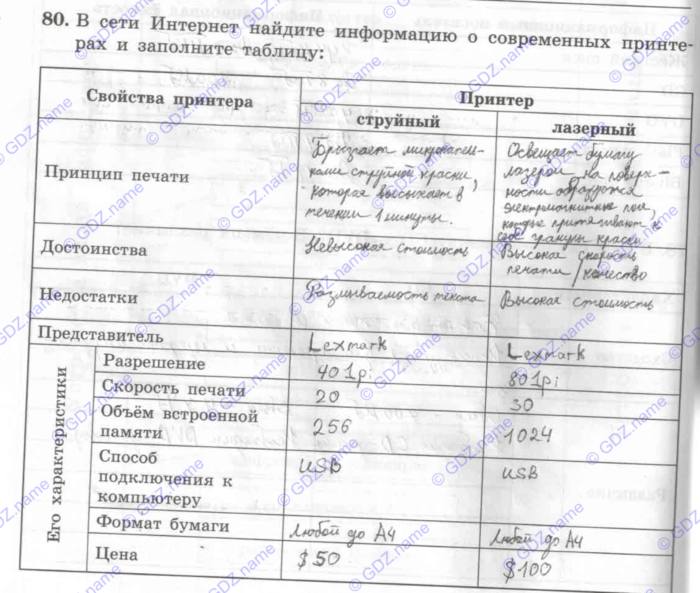 80. В сети Интернет найдите информацию о современных принте-
рах и заполните таблицу:
Свойства принтера
Принтер
струйный
лазерный
Принцип печати
Брызгает микрокапель-
ками струйной краски
которая высыхает в
течении 1 минуты.
Освещает бумагу
лазером, на поверх-
ности образуются
электромагнитные поля,
которые притягивают к
себе гранулы краски
Достоинства
Невысокая стоимость
Высокая скорость
печати / качество
Недостатки
Размываемость текста
Высокая стоимость
Представитель
Lexmark
Lexmark
Его характеристики
Разрешение
401pi
801pi
Скорость печати
20
30
Объём встроенной
памяти
256
1024
Способ
подключения к
компьютеру
USB
USB
Формат бумаги
Любой до А4
Любой до А4
Цена
$50
$100
© GDZ.name